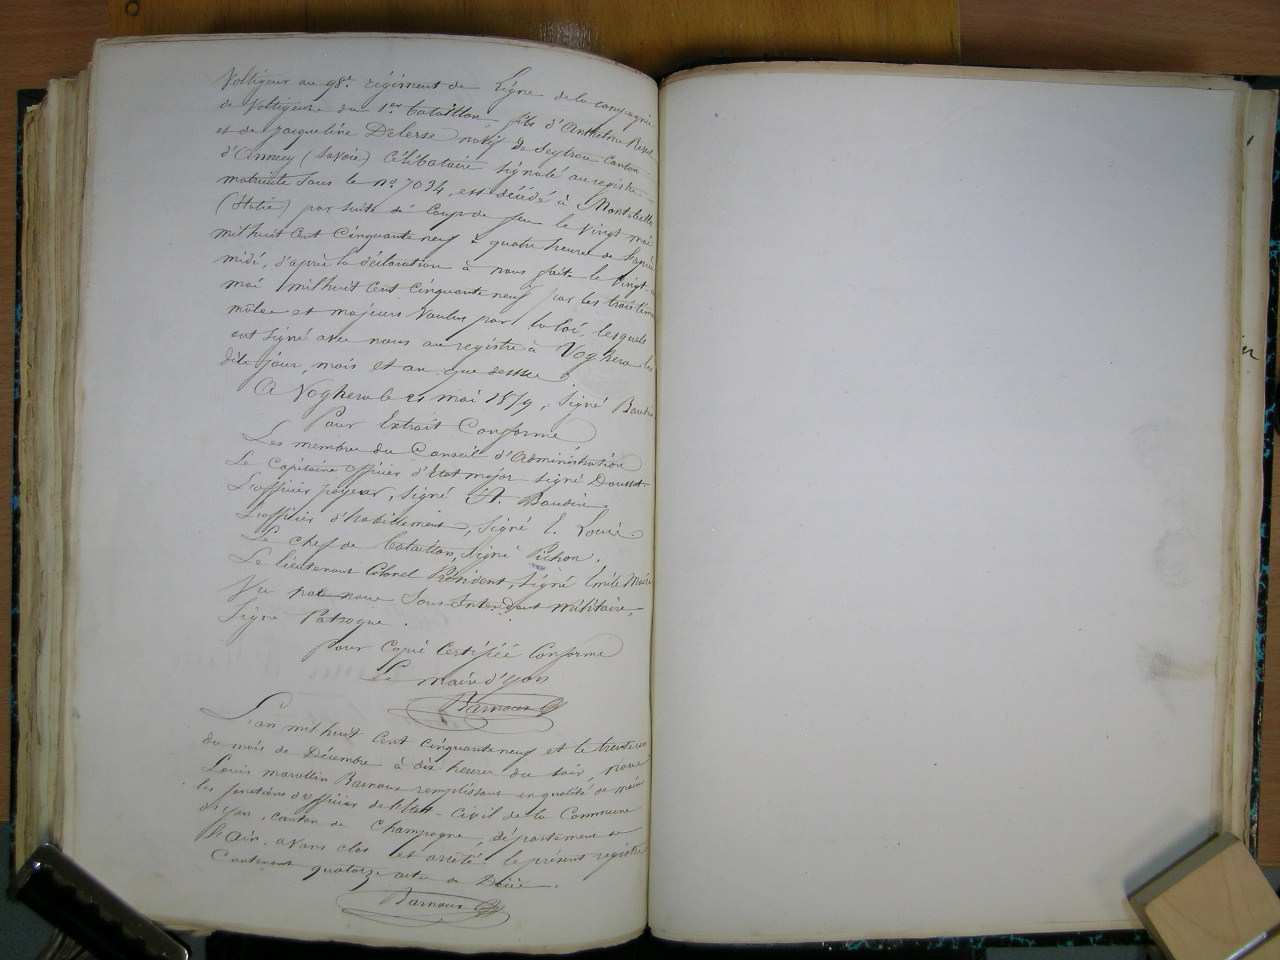 Voltigeur au 98e régiment de Ligne de la compagnie
de Voltigeurs du 1er bataillon fils d'Anthelme
et de Jacqueline Delerse natif de Seytrou Canton
d'Annecy (Savoie) Célibataire signalé au registre
matricule sous le no 7034, est décédé à Montebello
(Italie) par suite de Coup de feu le Vingt mai
mil huit Cent Cinquante neuf à quatre heures de l'après
midi, d'après la déclaration à nous faite le Vingt-
mai mil huit Cent Cinquante neuf par les trois témoins
mâles et majeurs Voulus par la loi, lesquels
ont signé avec nous au registre à Voghera les
dits jour, mois et an que dessus
A Voghera le 21 mai 1859, signé Baudin
Pour Extrait Conforme
Les membres du Conseil d'Administration
Le Capitaine officier d'Etat major signé Doussot
L'officier payeur, signé A. Baudin
L'officier d'habillement, signé E.
Le chef de bataillon, signé Pichon.
Le lieutenant Colonel Président, signé Emile
Vu par nous Sous Intendant militaire,
signé Patrogue.
pour Copie Certifiée Conforme
Le maire d'Yon
Barnoux
L'an mil huit Cent Cinquante neuf et le trente un
du mois de Décembre à dix heures du soir, nous
Louis marcellin Barnoux remplissant en qualité de maire
les fonctions d'officier de l'Etat-Civil de la Commune
d'Yon, canton de Champagne, département de
l'Ain, avons clos et arrêté le présent registre
Contenant quatorze actes de Décès.
Barnoux